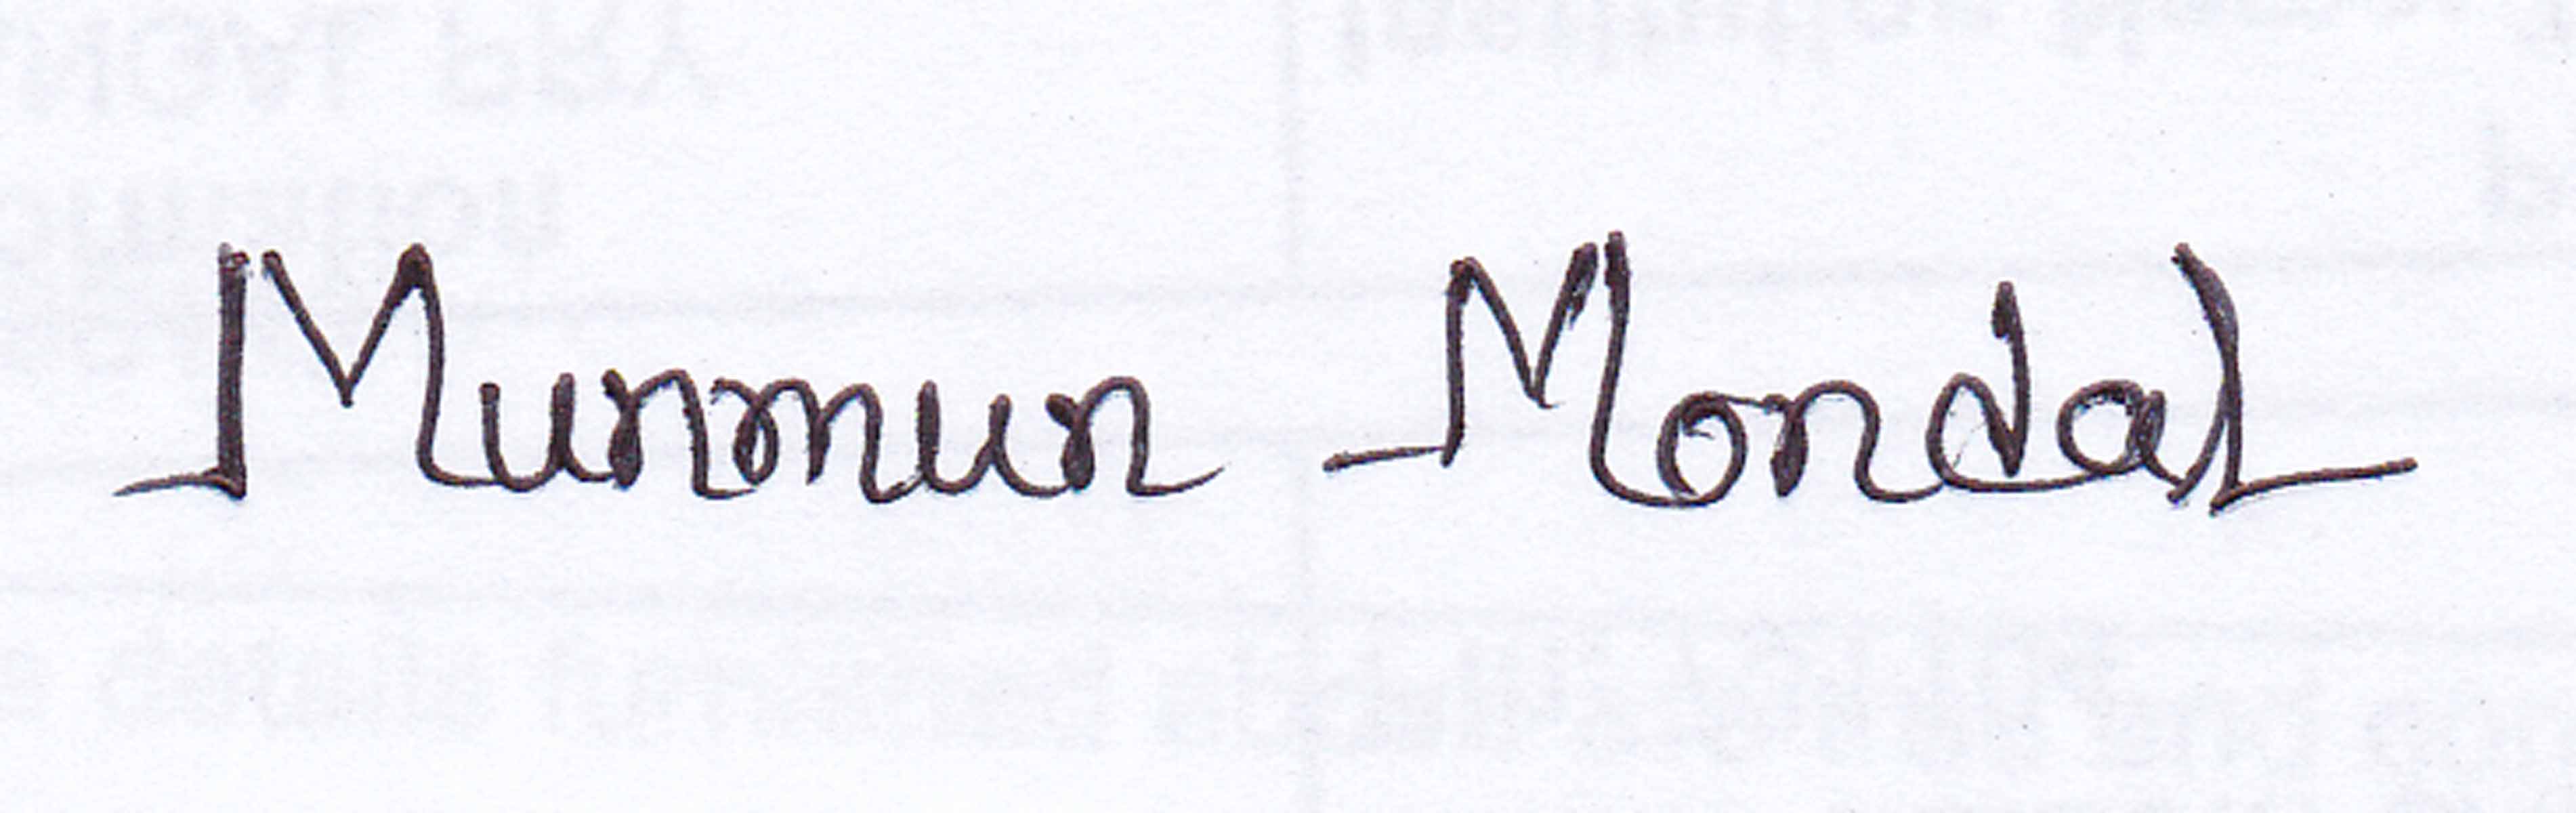 Munmun Mondal